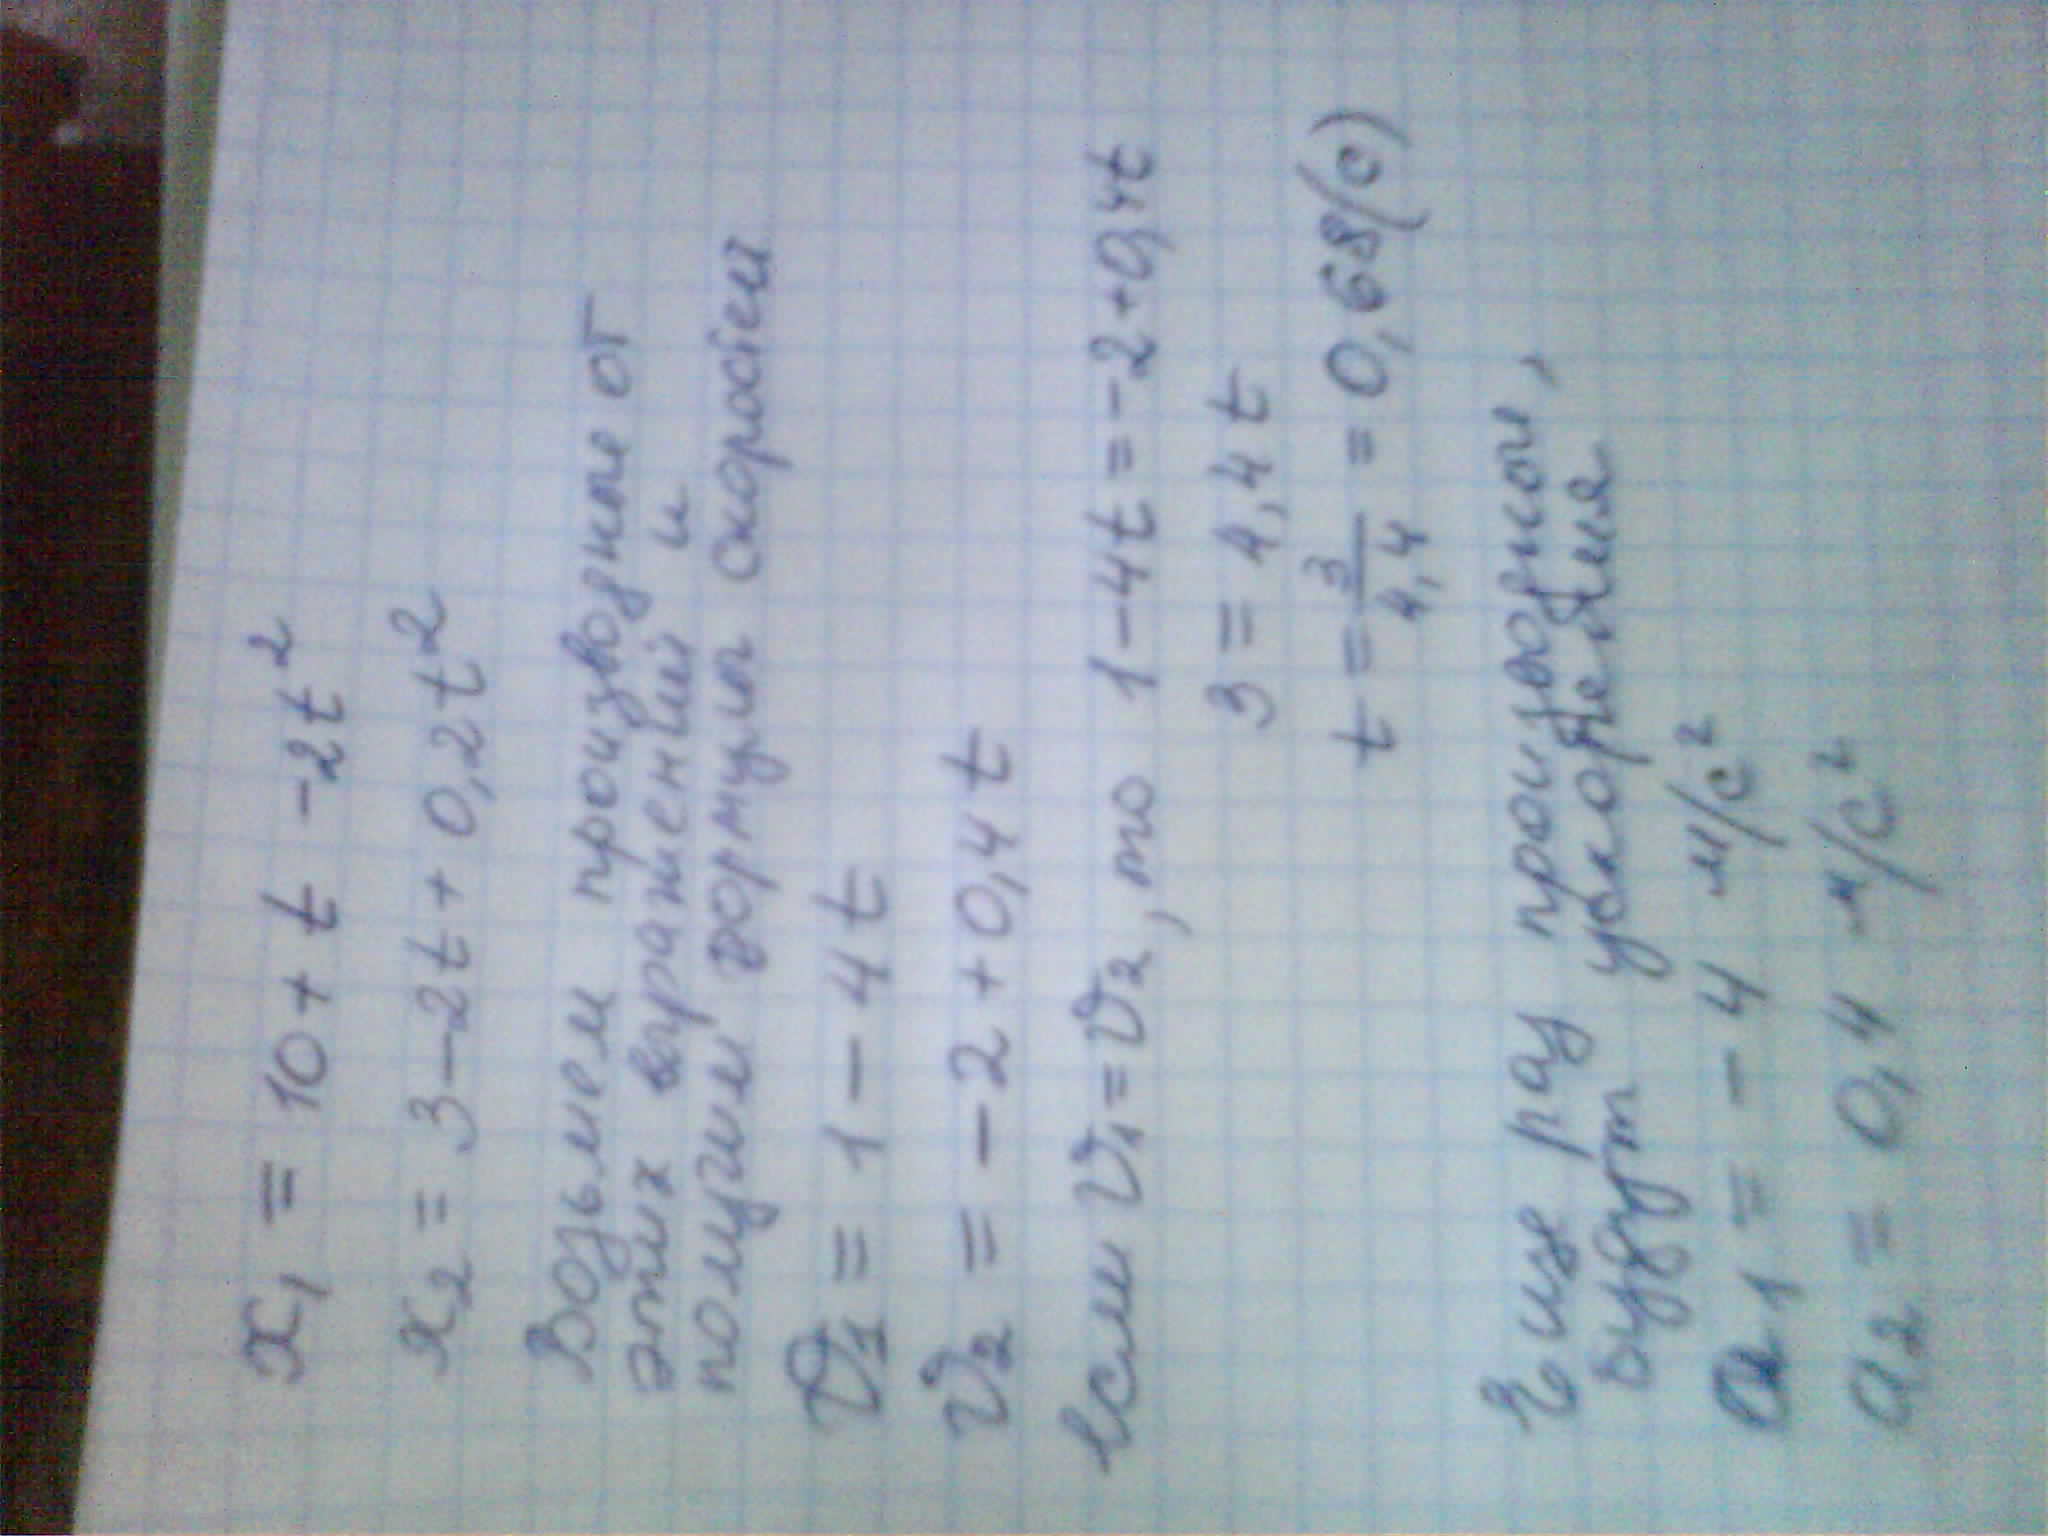 x₁ = 10 + t - 2t²
x₂ = 3 - 2t + 0,2t²
Возьмем производные от
этих выражений и
получим формулы скоростей
V₁ = 1 - 4t
V₂ = -2 + 0,4t
Если V₁ = V₂, то 1 - 4t = -2 + 0,4t
3 = 4,4t
t = 3/4,4 = 0,68 (с)
Еще раз производной,
будут ускорения
a₁ = -4 м/с²
a₂ = 0,4 м/с²